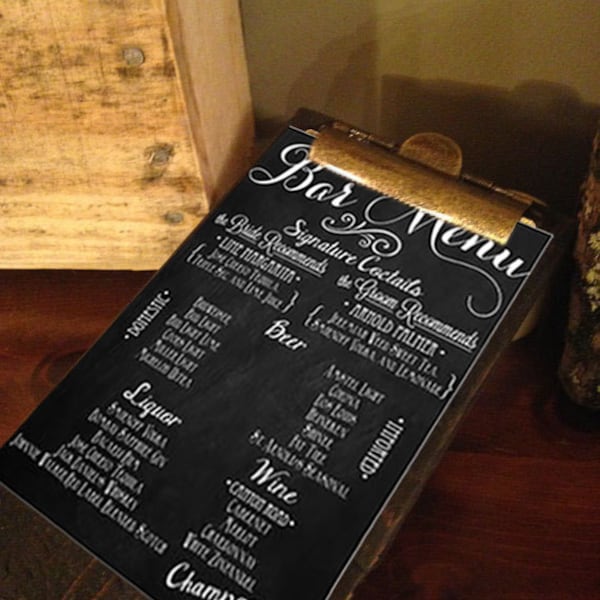 Bar Menu
Signature Cocktails
the Bride Recommends
• Lime Margarita •
{ Jose Cuervo Tequila,
Triple Sec, and Lime Juice }
the Groom Recommends
• Arnold Palmer •
Sweet Tea
Vodka, and Lemonade }
Beer
• Domestic •
Budweiser
Bud Light
Bud Light Lime
Coors Light
Miller Light
Michelob Ultra
• Imported •
Amstel Light
Corona
Fat Tire
St. Arnold's Seasonal
Liquor
Smirnoff Vodka
Bombay Sapphire Gin
Bacardi Rum
Jose Cuervo Tequila
Jack Daniel's Whiskey
Johnnie Walker Red Label Blended Scotch
Wine
• Canyon Road •
Cabernet
Merlot
Chardonnay
White Zinfandel
Champa